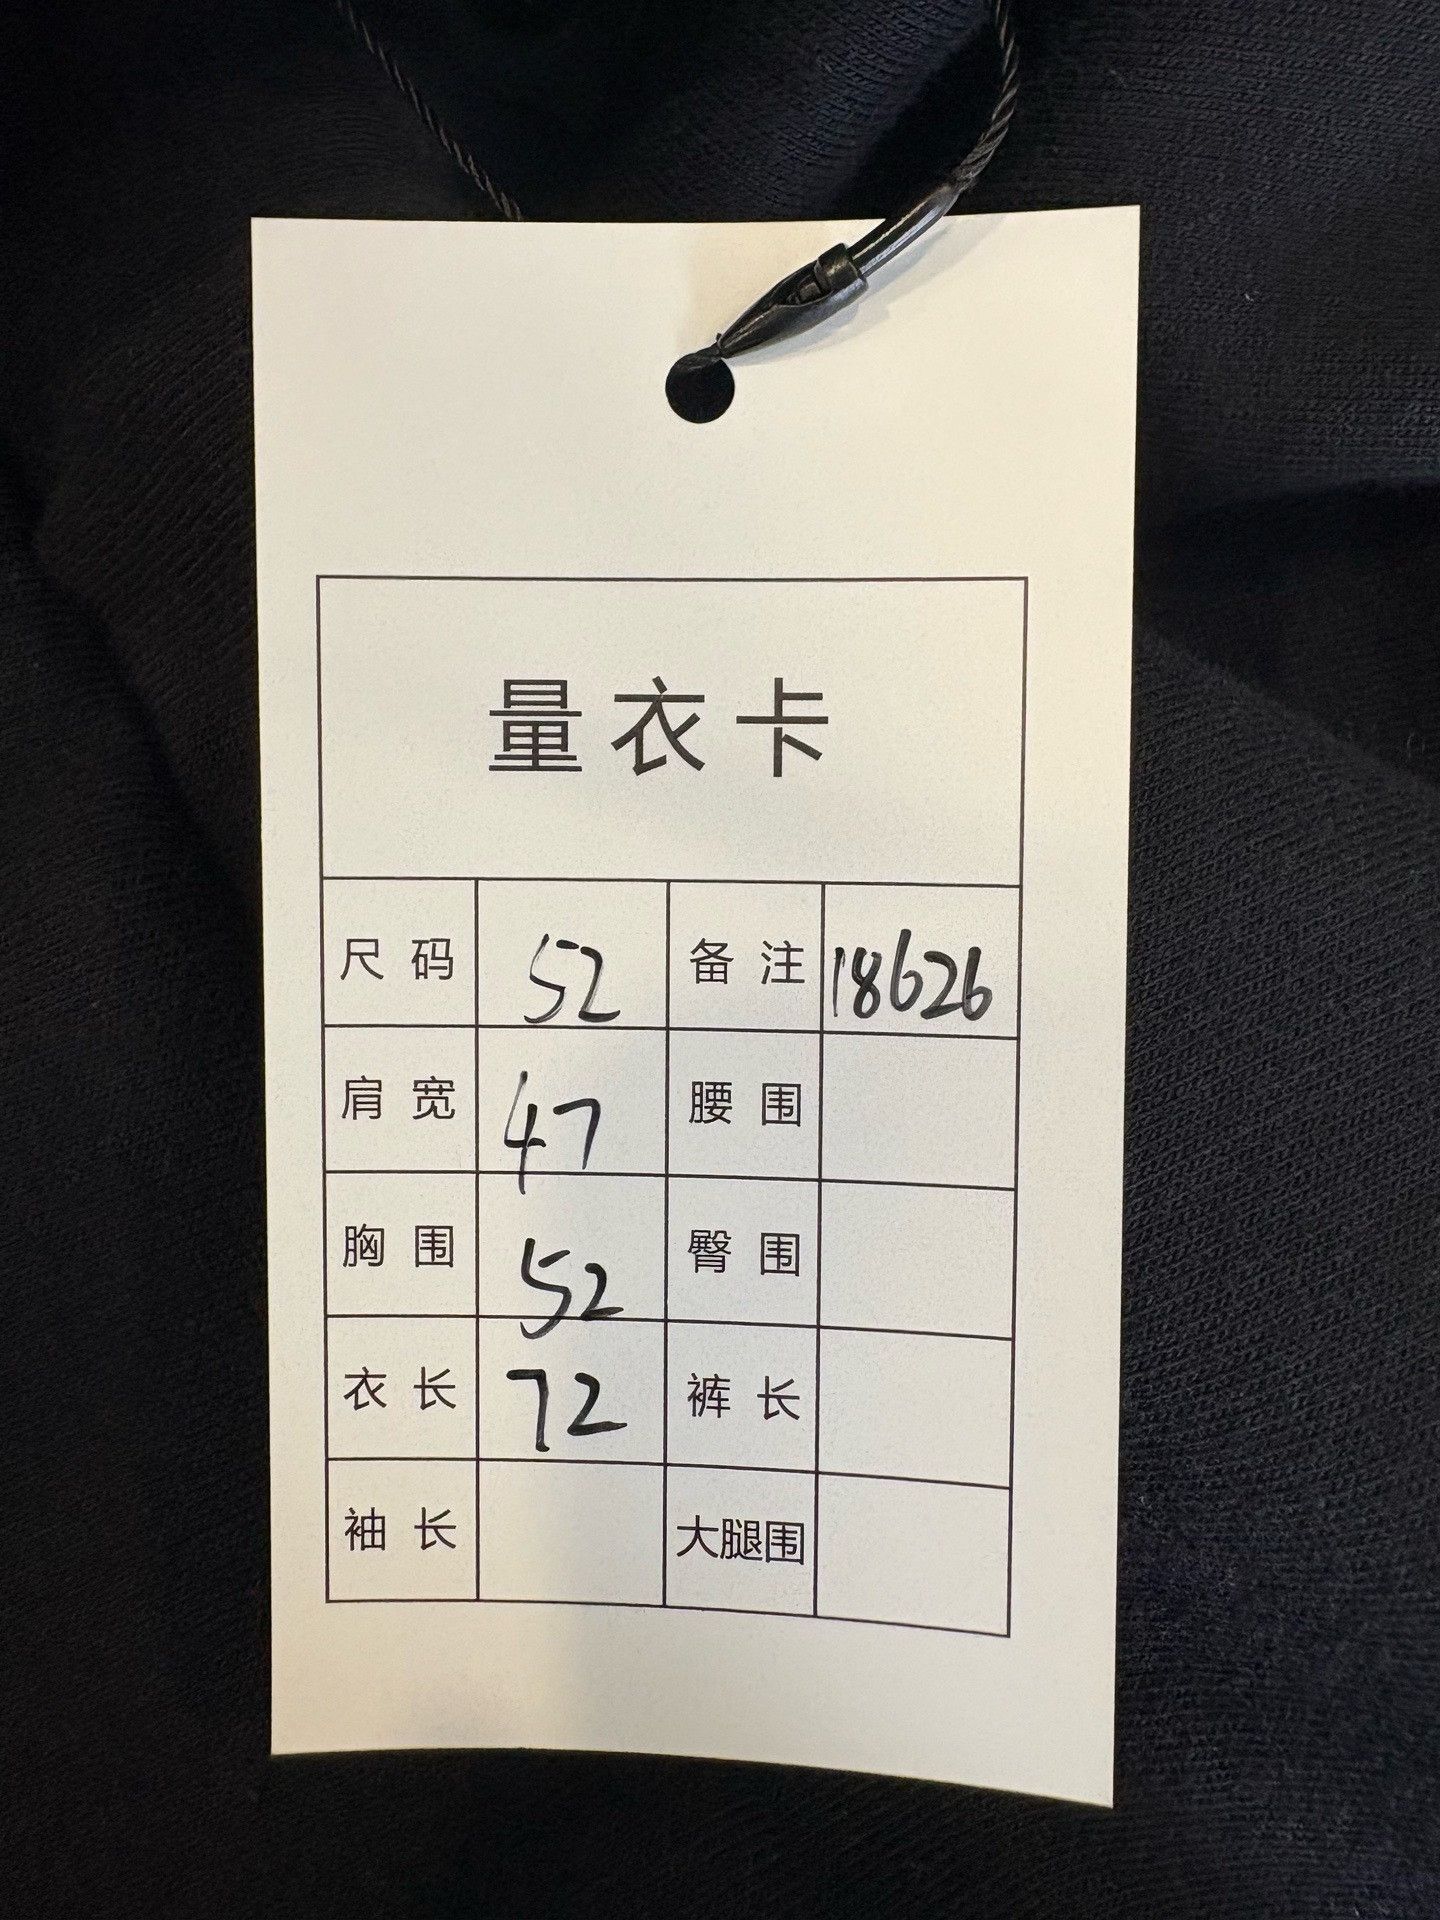 量衣卡
尺码 52 备注 18626
肩宽 47 腰围
胸围 52 臀围
衣长 72 裤长
袖长 大腿围